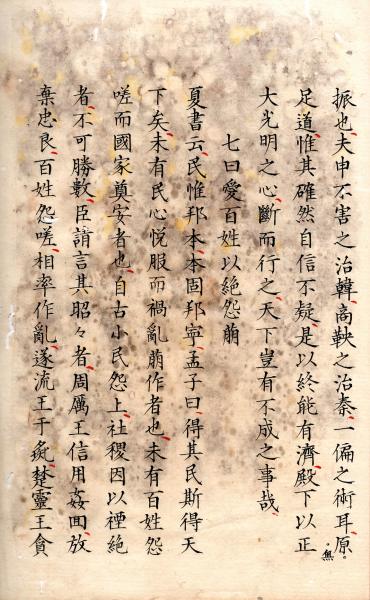 振也夫申不害之治韓商鞅之治秦一偏之術耳原
無
足道惟其確然自信不疑是以終能有濟殿下以正
大光明之心斷而行之天下豈有不成之事哉
七曰愛百姓以絶怨崩
夏書云民惟邦本本固邦寧孟子曰得其民斯得天
下矣未有民心悅服而禍亂崩作者也未有百姓怨
嗟而國家奠安者也自古小民怨上社稷因以禋絶
者不可勝數臣請言其昭々者周厲王信用姦回放
棄忠良百姓怨嗟相率作亂遂流王于彘楚靈王貪